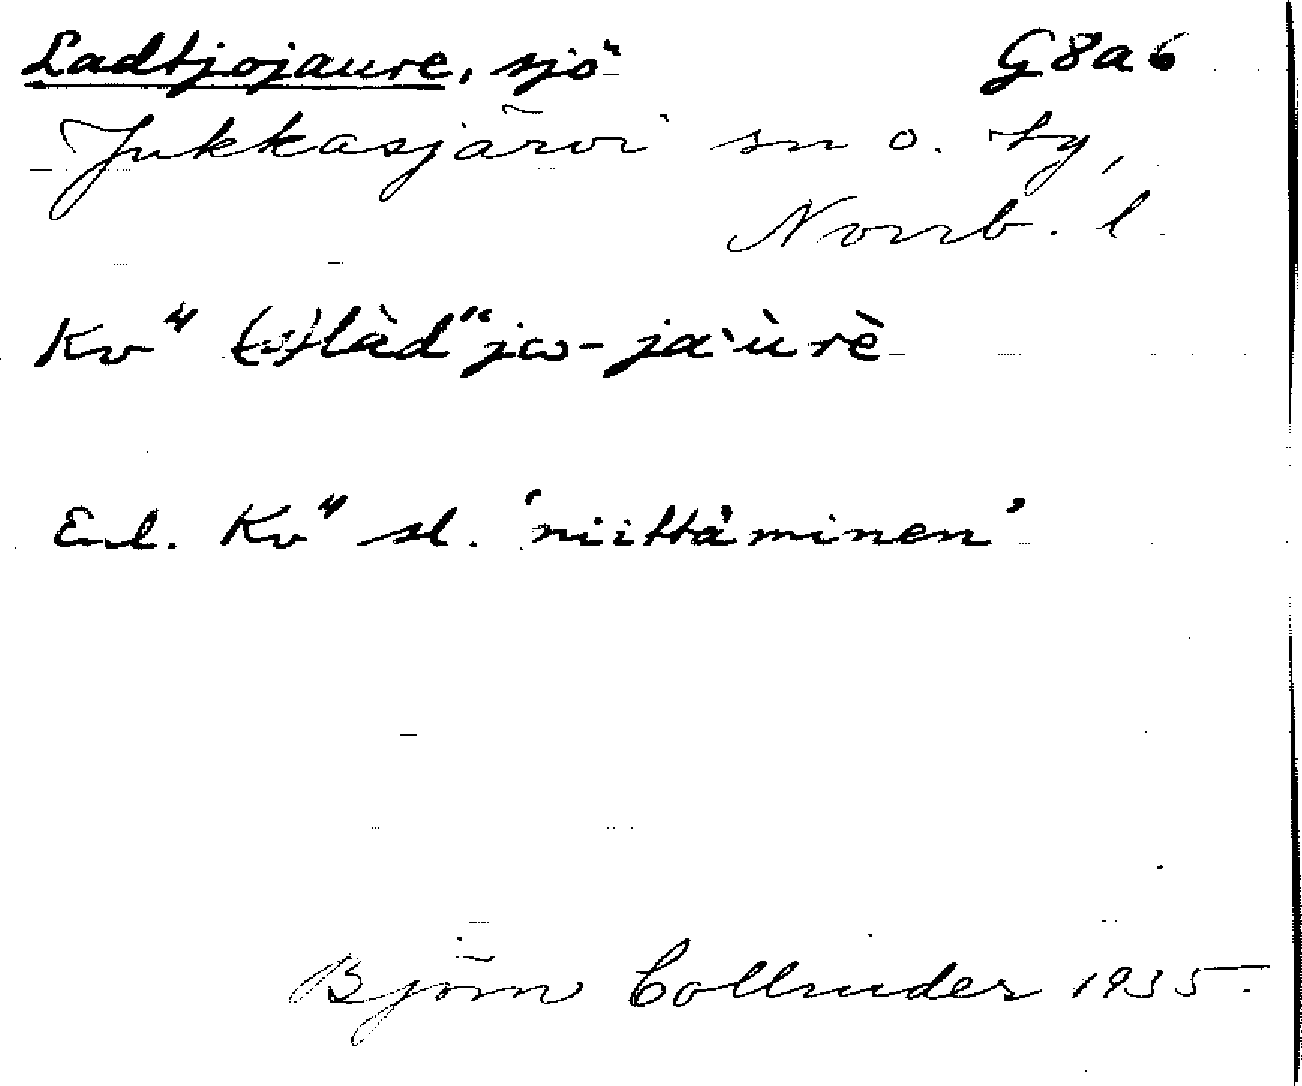 Ladtjojaure, sjö G8a6
Jukkasjärvi sn o. ty,
Norrb. l.
Kv" (ω)làd"jω-ja'ùrè
Enl. Kv" sl. 'niittäminen'
Björn Collinder 1935.